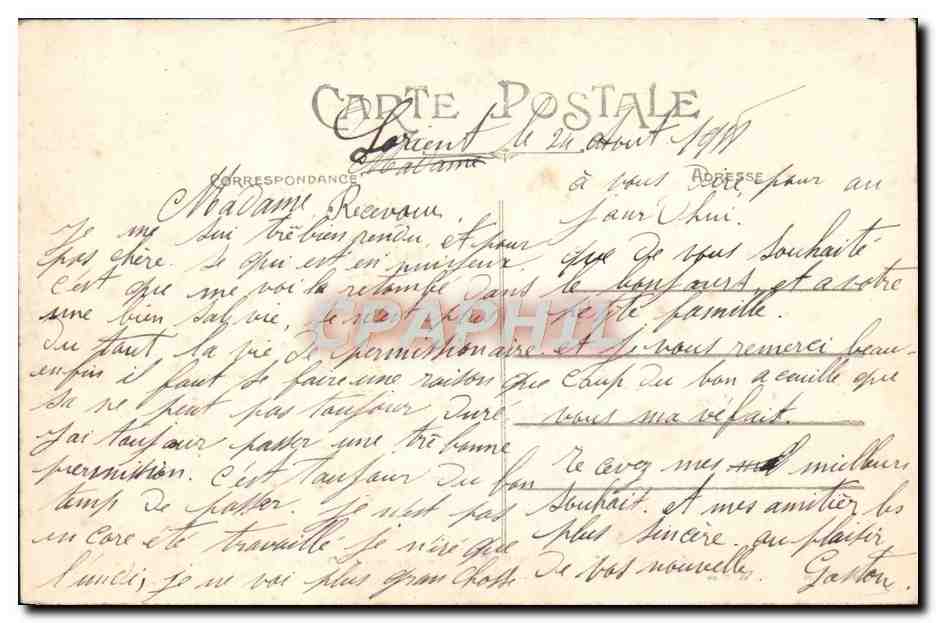 CARTE POSTALE
Lorient le 24 Aout 19
Madame
CORRESPONDANCE
Madame Recevour.
Je me sui trê bien rendu, et pour
pas chère. se qui est en nuiseux.
c'est que me voi la retombé dans
une bien sal vie, se n'ait plus
du tout la vie de permissionaire.
enfin il faut se faire une raison que
sa ne peut pas toujour duré
j'ai toujour passer une trê bonne
permission. c'est toujour du bon
temp de passer. je n'est pas
encore été travaillé je n'iré que
l'undi, je ne voi plus gran chose
ADRESSE
à vous écrire pour au
jour d'hui.
que de vous souhaité
le bonjours, et a votre
petite famille.
et je vous remerci beau-
coup du bon acuille que
vous ma véfait.
Recevez mes meilleurs
souhait. et mes amitiér les
plus sincère. au plaisir
de vos nouvelle. Gaston.
CPAPHIL